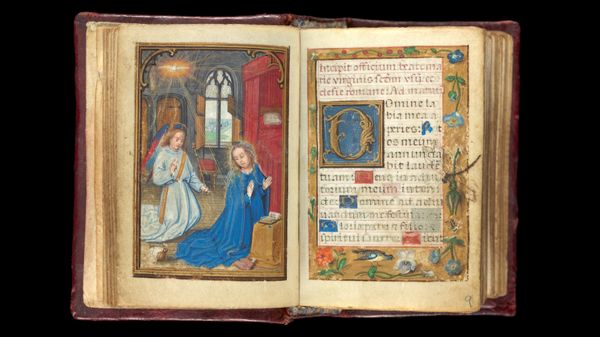 Incipit officium beate ma
rie virginis scdm usu ec
clesie romane: Ad matuti
Domine la
bia mea a
peries: Et
os meum
annuncia
bit laudem
tuam: Deus in adiu
torium meum inten
de: Domine ad adiu
uandum me festina
Gloria patri et filio
spiritui sancto: Sicut
9